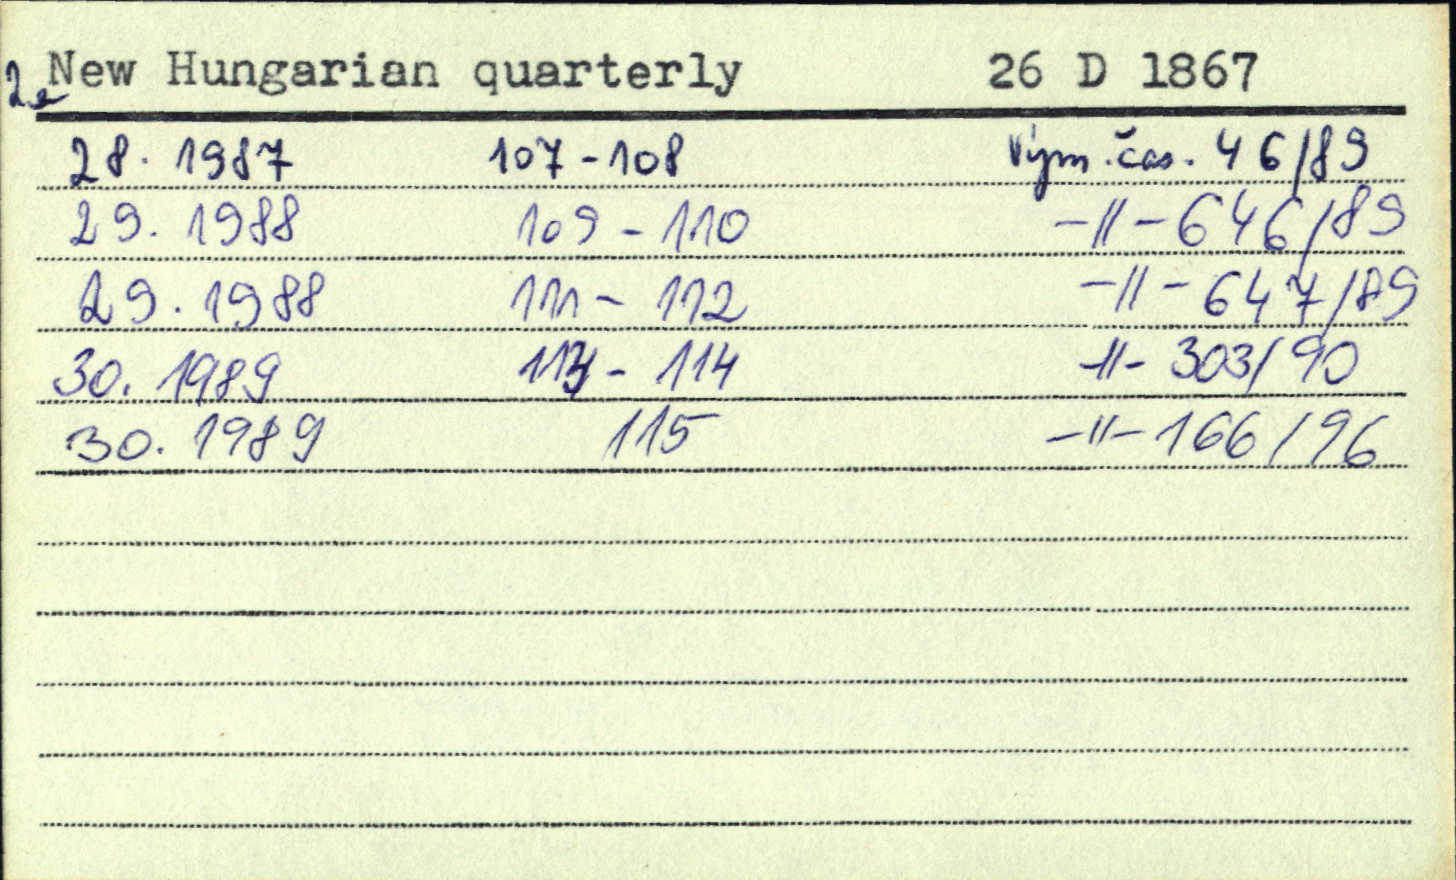 2. New Hungarian quarterly 26 D 1867
28. 1987 107-108 Vým.čas. 46/89
29. 1988 109-110 -||- 646/89
29. 1988 111-112 -||- 647/89
30. 1989 113-114 -||- 303/90
30. 1989 115 -||- 166/96